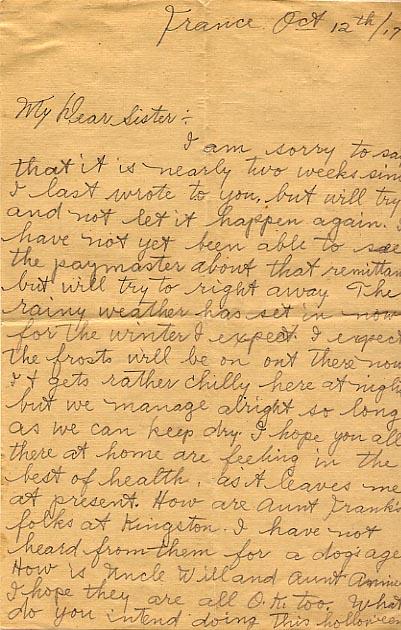 France Oct 12th/17
My Dear Sister :-
I am sorry to sa
that it is nearly two weeks sinc
I last wrote to you, but will try
and not let it happen again. I
have not yet been able to see
the paymaster about that remittan
but will try to right away The
rainy weather has set in now
for the winter I expect. I expect
the frosts will be on out there now
it gets rather chilly here at night
but we manage alright so long
as we can keep dry. I hope you all
there at home are feeling in the
best of health, as it leaves me
at present. How are Aunt Frank's
folks at Kingston. I have not
heard from them for a dogs age
How is Uncle Will and Aunt Annie
I hope they are all O.K. too. What
do you intend doing this holloween